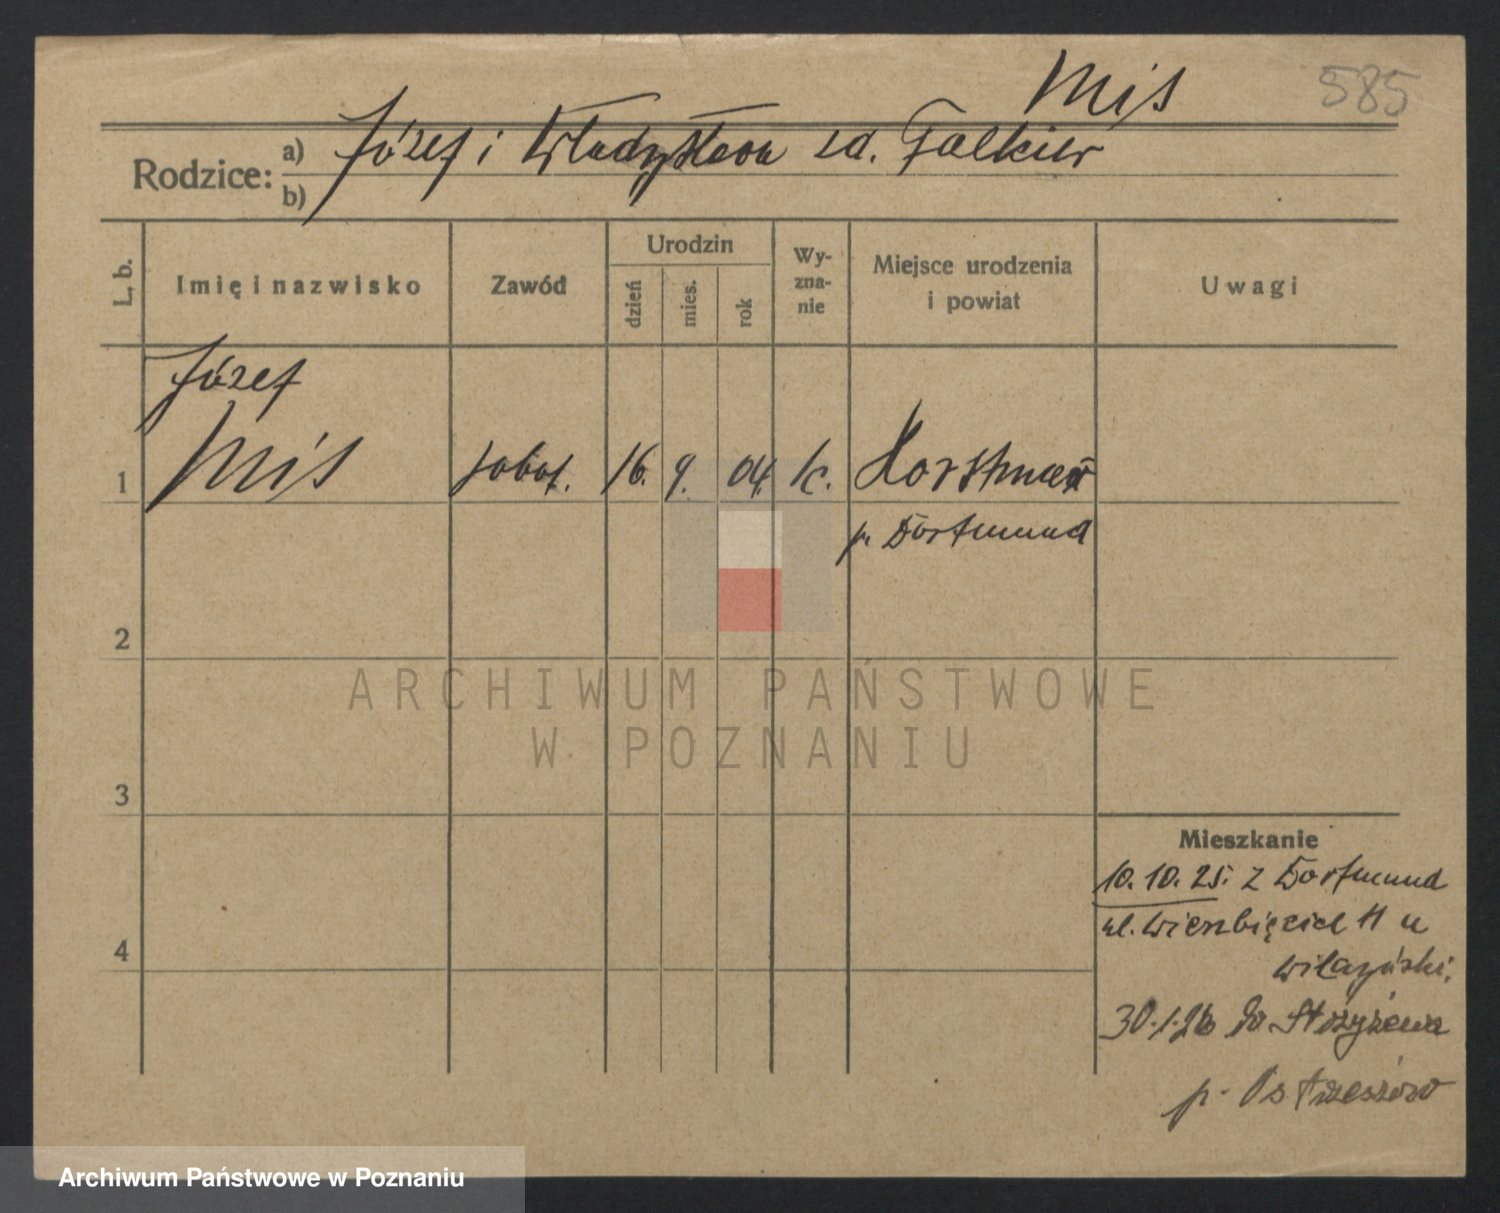 Mis 585
Rodzice: a) Józef i Władysława zd. Falkiew
b)
L. b. Imię i nazwisko Zawód Urodzin dzień mies. rok Wy-zna-nie Miejsce urodzenia i powiat Uwagi
Józef
1 Mis robot. 16. 9. 04. k. Horstmar
p. Dortmund
2
ARCHIWUM PAŃSTWOWE
W POZNANIU
3
Mieszkanie
10.10.25. z Dortmund
4 ul. Wierzbięcice 11 u
30.1.26 do
p. Ostrzeszów
Archiwum Państwowe w Poznaniu